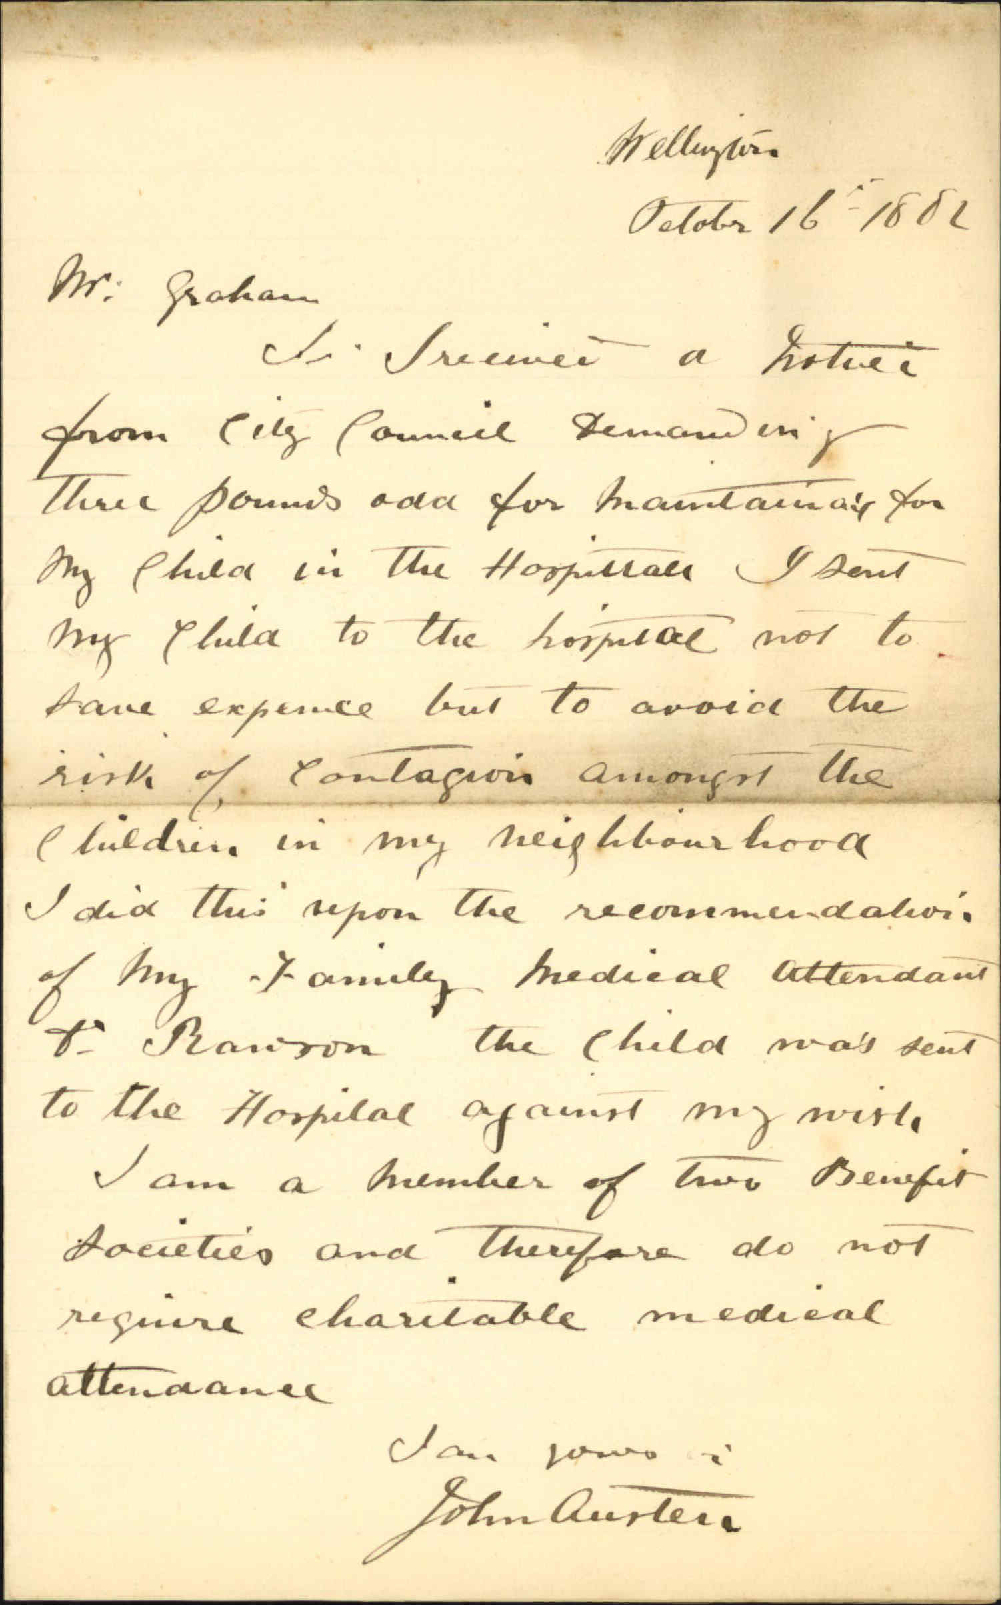 Wellington
October 16th 1882
Mr: Graham
Sir I received a Notice
from City Council Demanding
three pounds odd for Maintaining for
My Child in the Hospittall I sent
My Child to the hospital not to
save expence but to avoid the
risk of Contagion amongst the
Children in my neighbourhood
I did this upon the recommendation
of My Family Medical Attendant
Dr Rawson the Child was sent
to the Hospital against my wish
I am a Member of two Benefit
Societies and therefore do not
reguire charitable medical
attendance
I am yours
John Austen